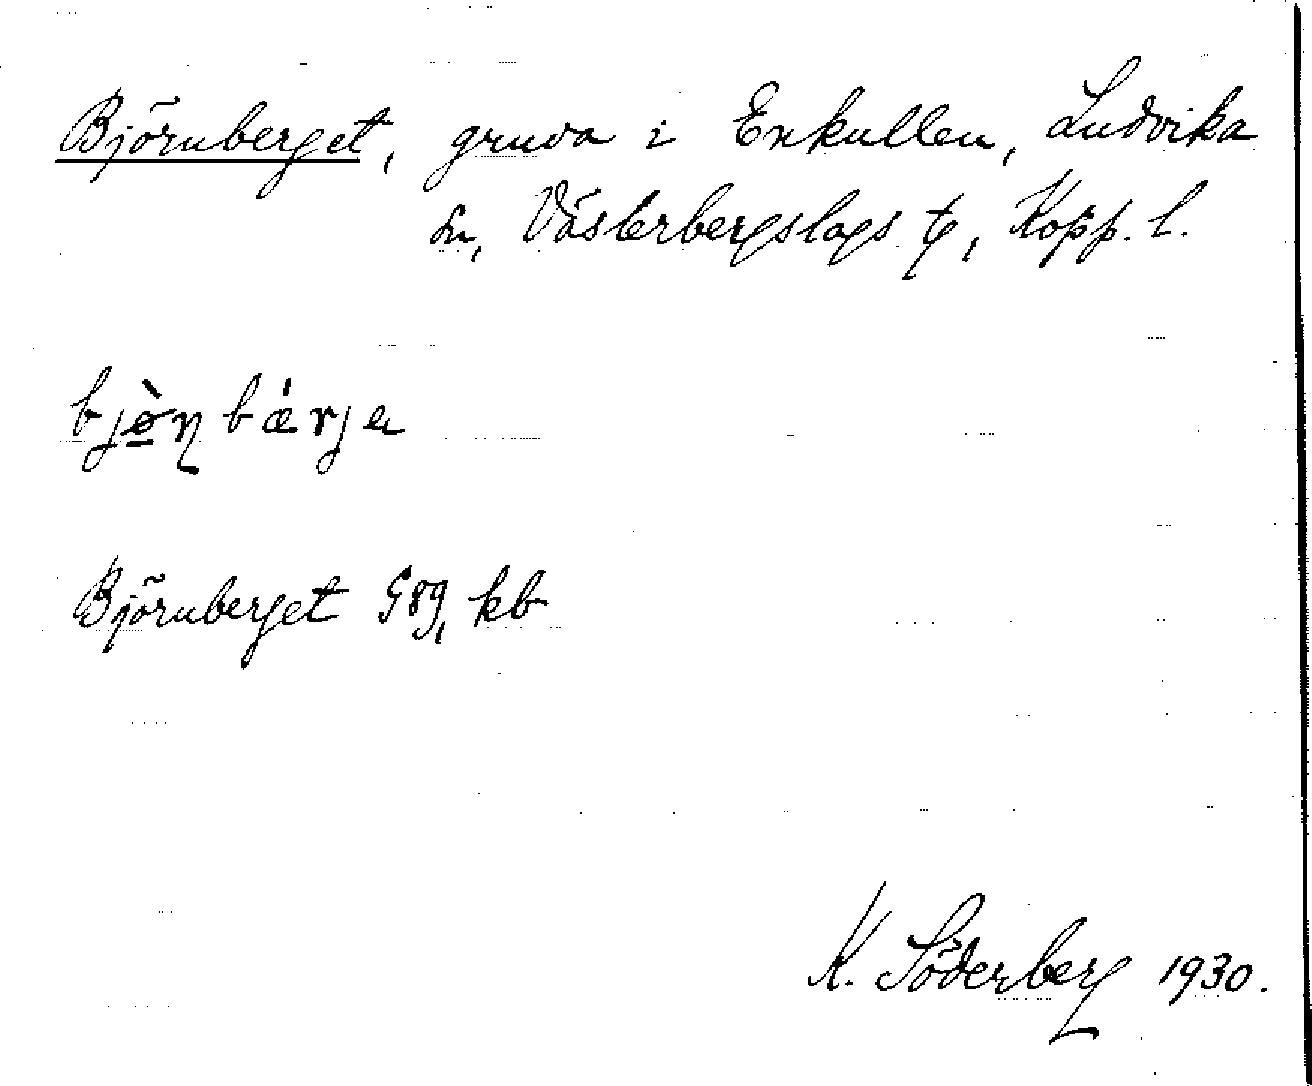 Björnberget, gruva i Enkullen, Ludvika
sn, Västerbergslags tg, Kopp. l.
bjø̀ɳbǽrjə
Björnberget 589, kb
K. Söderberg 1930.